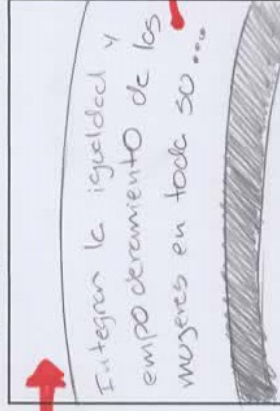 Integran la igualdad y
empoderamiento de las
mujeres en toda so...